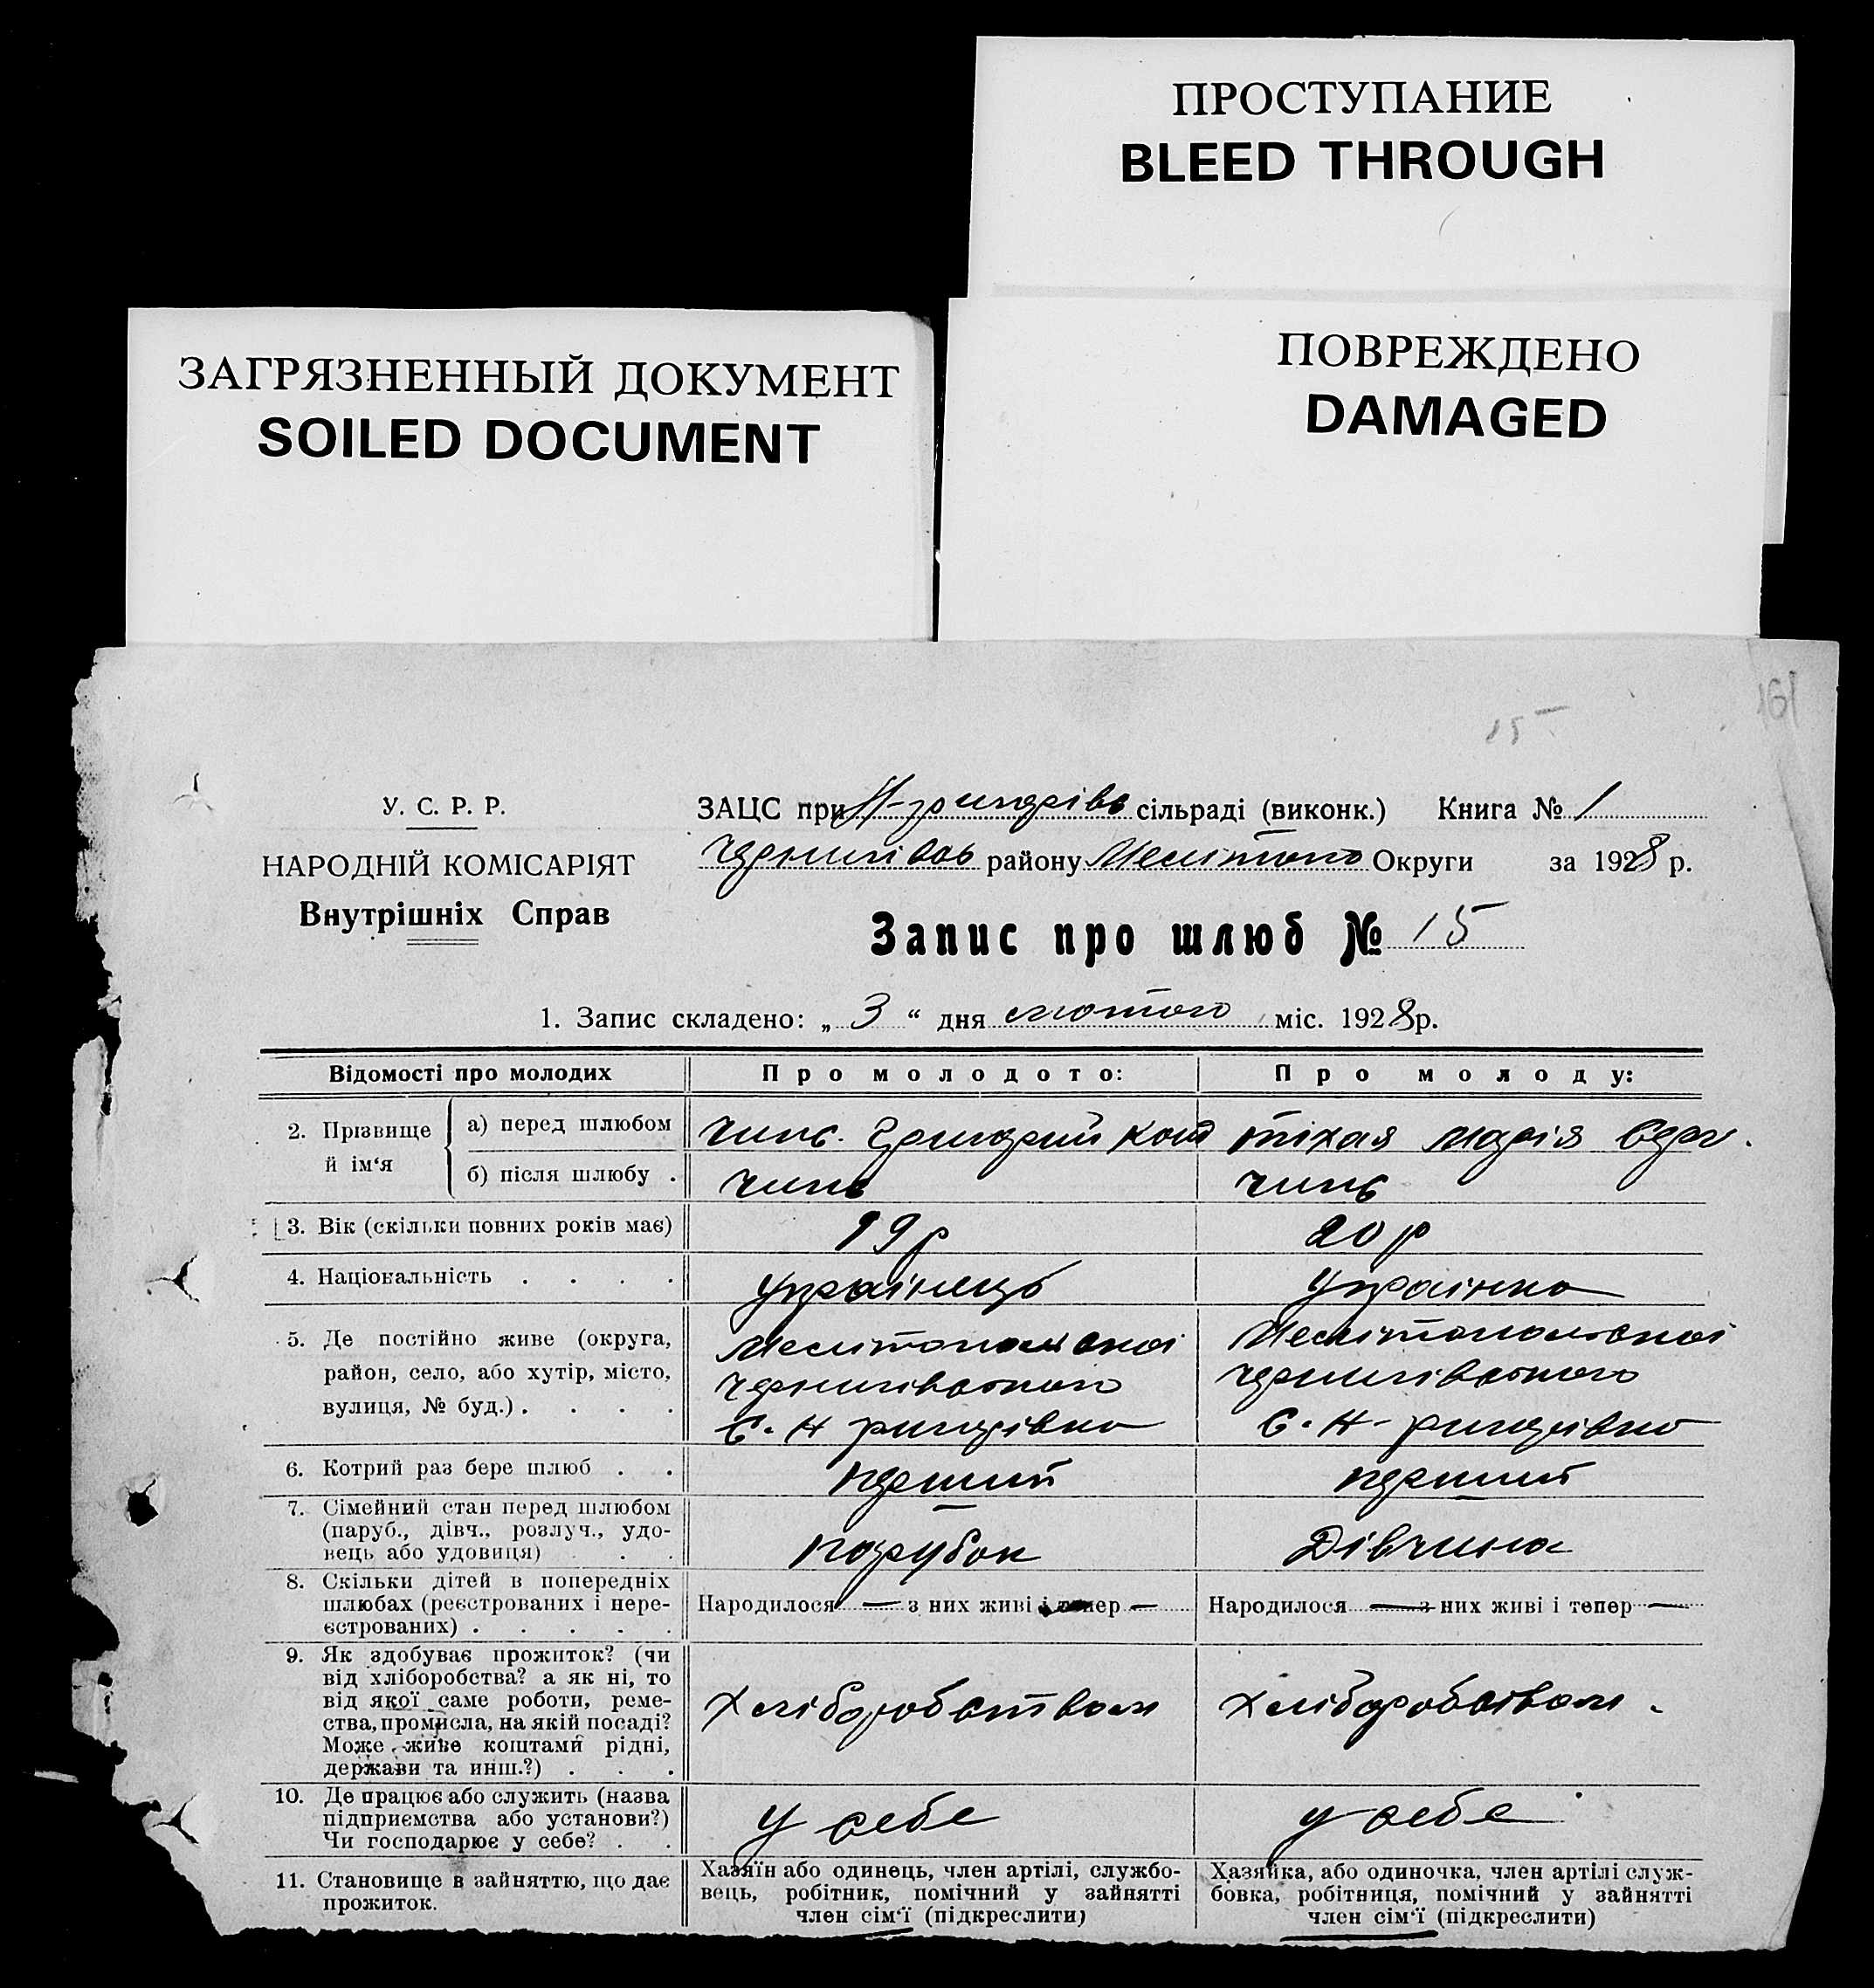 ПРОСТУПАНИЕ
BLEED THROUGH
ПОВРЕЖДЕНО
DAMAGED
ЗАГРЯЗНЕННЫЙ ДОКУМЕНТ
SOILED DOCUMENT
15
У. С. Р. Р.
НАРОДНІЙ КОМІСАРІЯТ
Внутрішніх Справ
ЗАЦС при сільраді (виконк.) Книга № 1
Чернигівсь району Меліто Округи за 1928 р.
Запис про шлюб № 15
1. Запис складено: „ 3 “ дня лютого міс. 1928 р.
Відомості про молодих
Про молодого:
Про молоду:
2. Прізвище й ім‘я
а) перед шлюбом
Григорий
тіхая марія
б) після шлюбу .
3. Вік (скільки повних років має)
19 р
20 р
4. Національність . . . .
Українець
Українка
5. Де постійно живе (округа,
район, село, або хутір, місто,
вулиця, № буд.) . . . .
Мелітопольскої
Чернигівського
Мелітопольскої
Чернигівського
6. Котрий раз бере шлюб . .
перший
перший
7. Сімейний стан перед шлюбом
(паруб., дівч., розлуч., удо-
вець або удовиця) . .
парубок
Дівчина
8. Скільки дітей в попередніх
шлюбах (реєстрованих і нере-
єстрованих) . . . . .
Народилося — з них живі і тепер —
Народилося — з них живі і тепер —
9. Як здобуває прожиток? (чи
від хліборобства? а як ні, то
від якої саме роботи, реме-
ства, промисла, на якій посаді?
Може живе коштами рідні,
держави та инш.?) . . .
хліборобством
хліборобством
10. Де працює або служить (назва
підприємства або установи?)
Чи господарює у себе? . .
у себе
у себе
11. Становище в зайняттю, що дає
прожиток.
Хазяїн або одинець, член артілі, службо-
вець, робітник, помічний у зайнятті
член сім‘ї (підкреслити)
Хазяйка, або одиночка, член артілі служ-
бовка, робітниця, помічний у зайнятті
член сім‘ї (підкреслити)